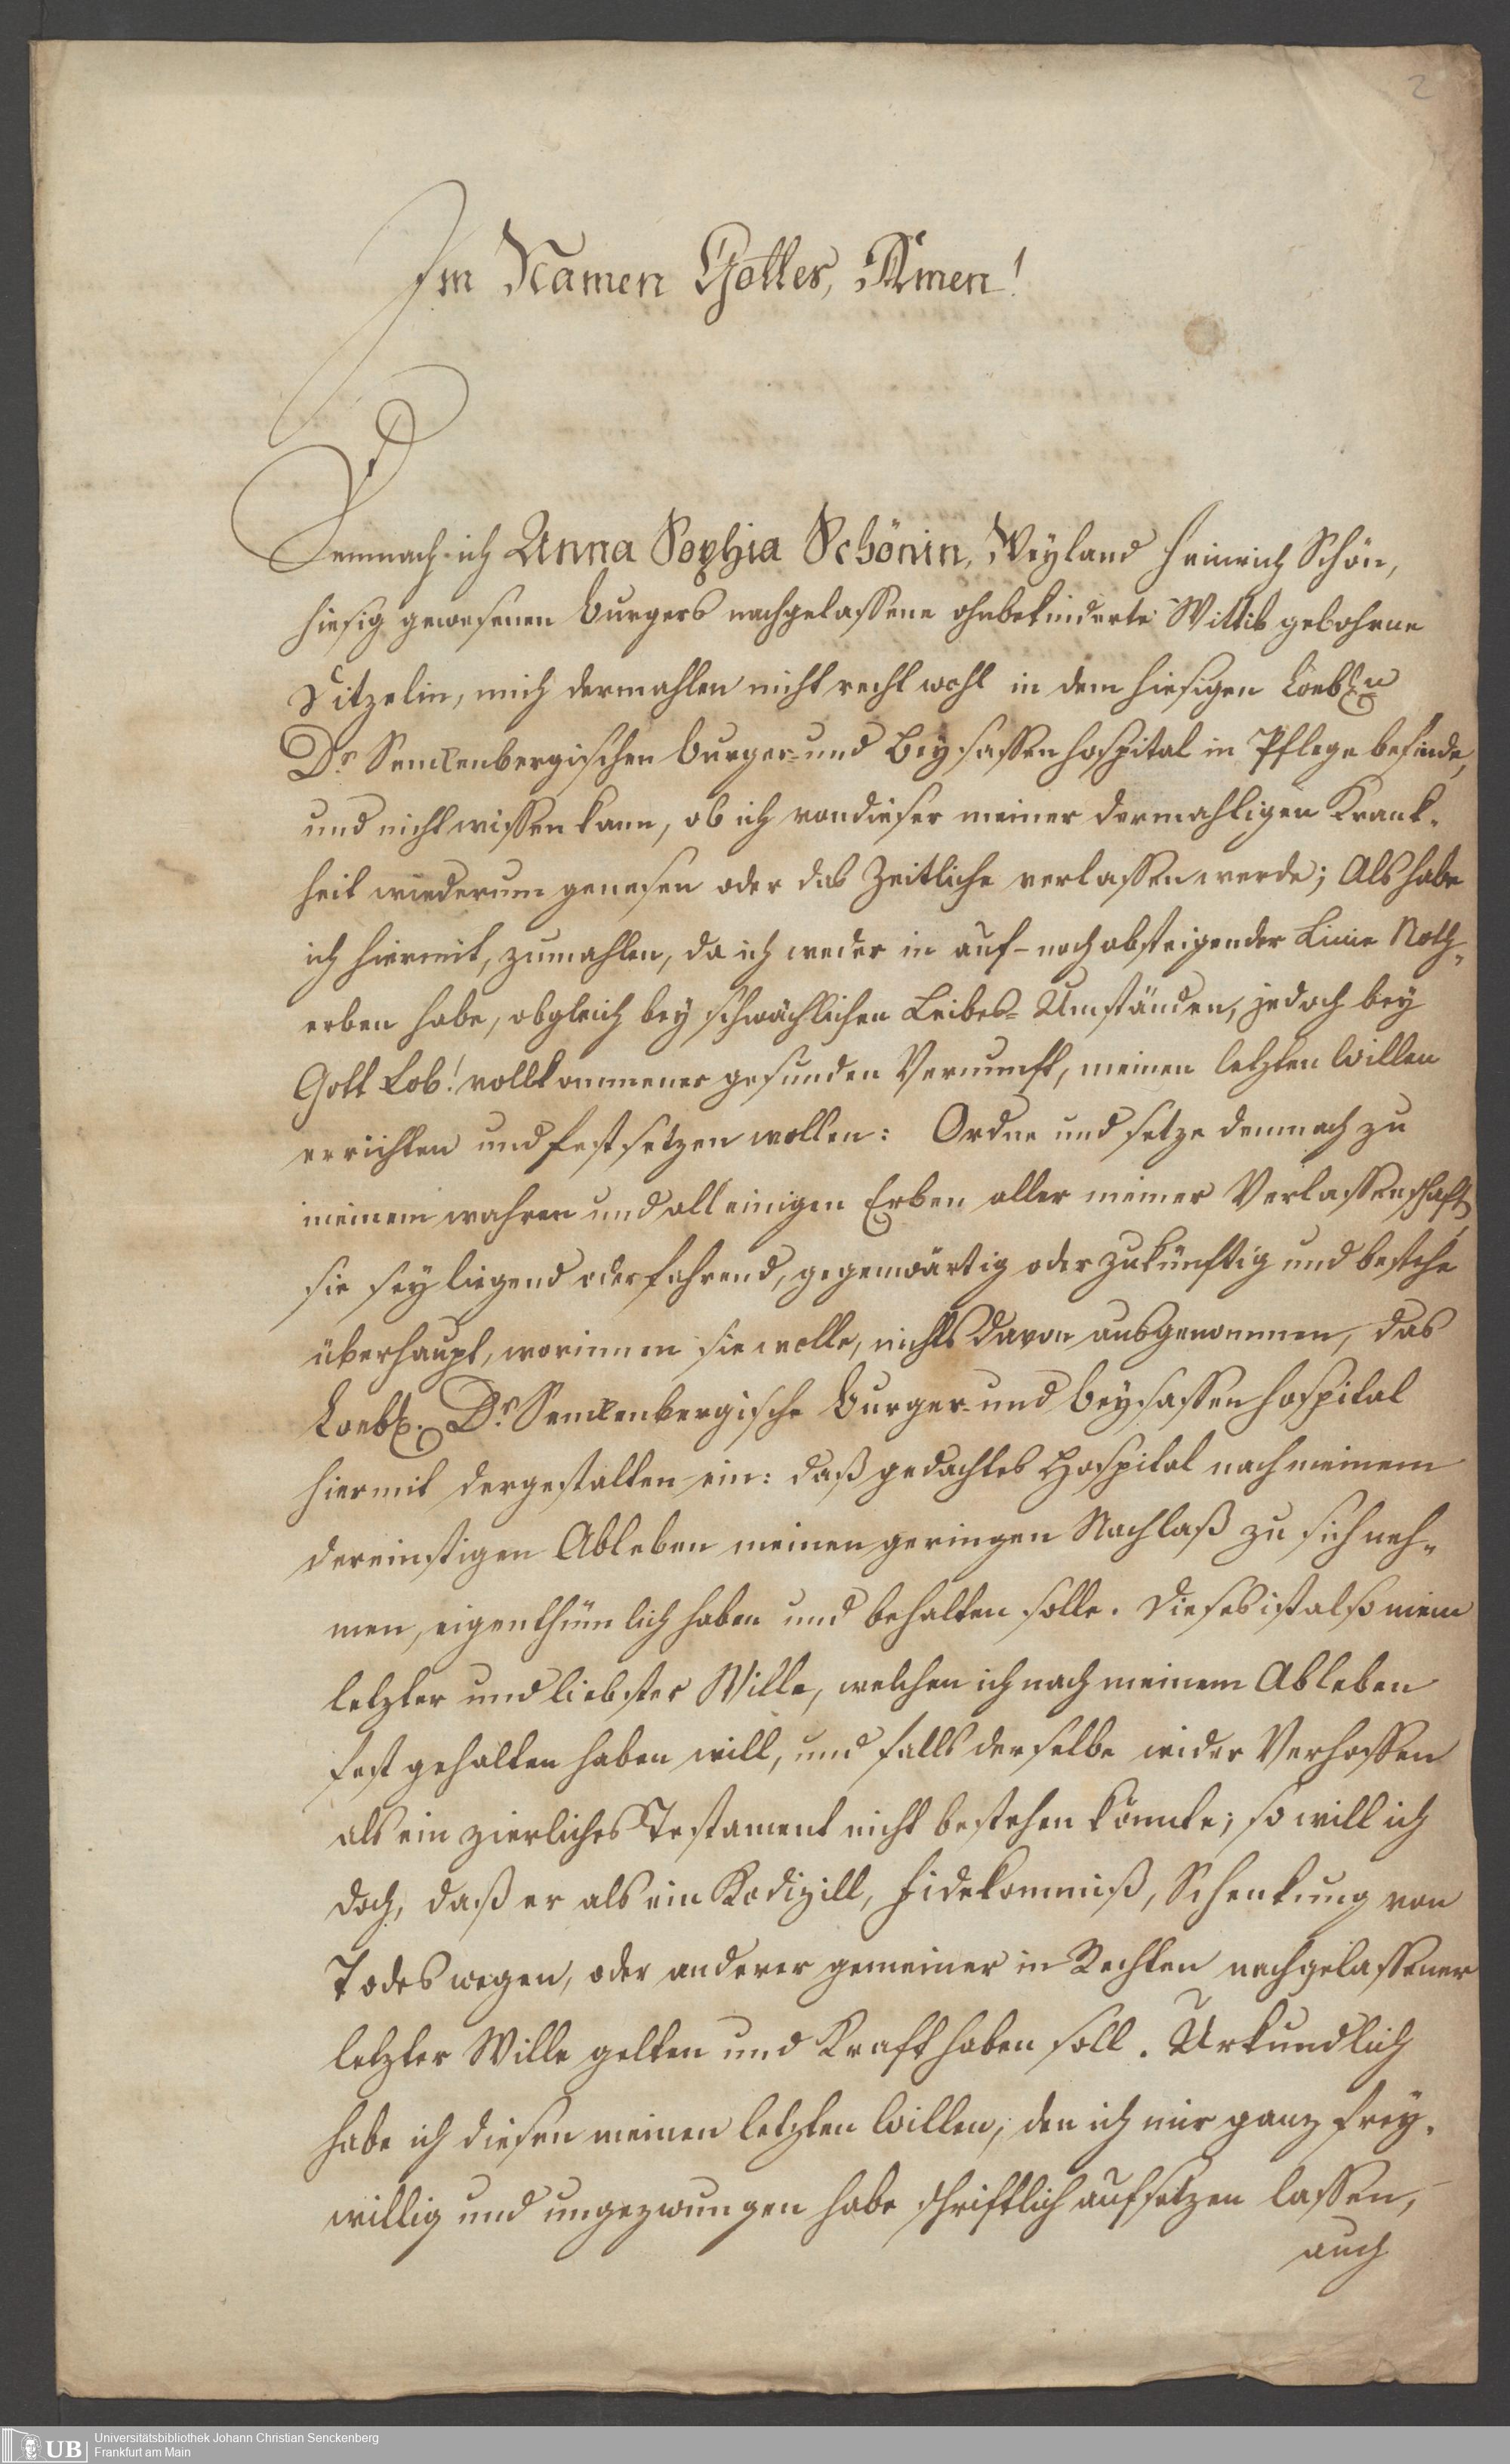 2
Im Namen Gottes, Amen!
Demnach ich Anna Sophia Schönin, Weyland Heinrich Schön,
hiesig gewesenen Burgers nachgelassene ohnbekinderte Wittib gebohrne
mich dermahlen nicht recht wohl in dem hiesigen
Dr. Senckenbergischen Burger- und Beysassenhospital in Pflege befinde,
und nicht wissen kann, ob ich von dieser meiner dermahligen Krank-
heit wiederum genesen oder das Zeitliche verlassen werde; Als habe
ich hiermit, zumahlen, da ich weder in auf- noch absteigender Linie Noth-
erben habe, obgleich bey schwächlichen Leibes-Umständen, jedoch bey
Gott Lob! vollkommener gesunden Vernunft, meinen letzten Willen
errichten und festsetzen wollen: Ordne und setze demnach zu
meinem wahren und alleinigen Erben aller meiner Verlassenschaft,
sie sey liegend oder fahrend, gegenwärtig oder zukünftig und bestehe
überhaupt, worinnen sie wolle, nichts davon ausgenommen, das
Loebl. Dr. Senckenbergische Burger- und Beysassenhospital
hiermit dergestalten ein: daß gedachtes Hospital nach meinem
dereinstigen Ableben meinen geringen Nachlaß zu sich neh-
men, eigenthümlich haben und behalten solle. Dieses ist also mein
letzter und liebster Wille, welchen ich nach meinem Ableben
fest gehalten haben will, und falls derselbe wider Verhoffen
als ein zierliches Testament nicht bestehen könnte; so will ich
doch, daß er als ein Kodizill, Fidekommiß, Schenkung von
Todes wegen, oder anderer gemeiner in Rechten nachgelassener
letzter Wille gelten und Kraft haben soll. Urkundlich
habe ich diesen meinen letzten Willen, den ich mir ganz frey-
willig und ungezwungen habe schriftlich aufsetzen lassen,
auch
UB
Universitätsbibliothek Johann Christian Senckenberg
Frankfurt am Main